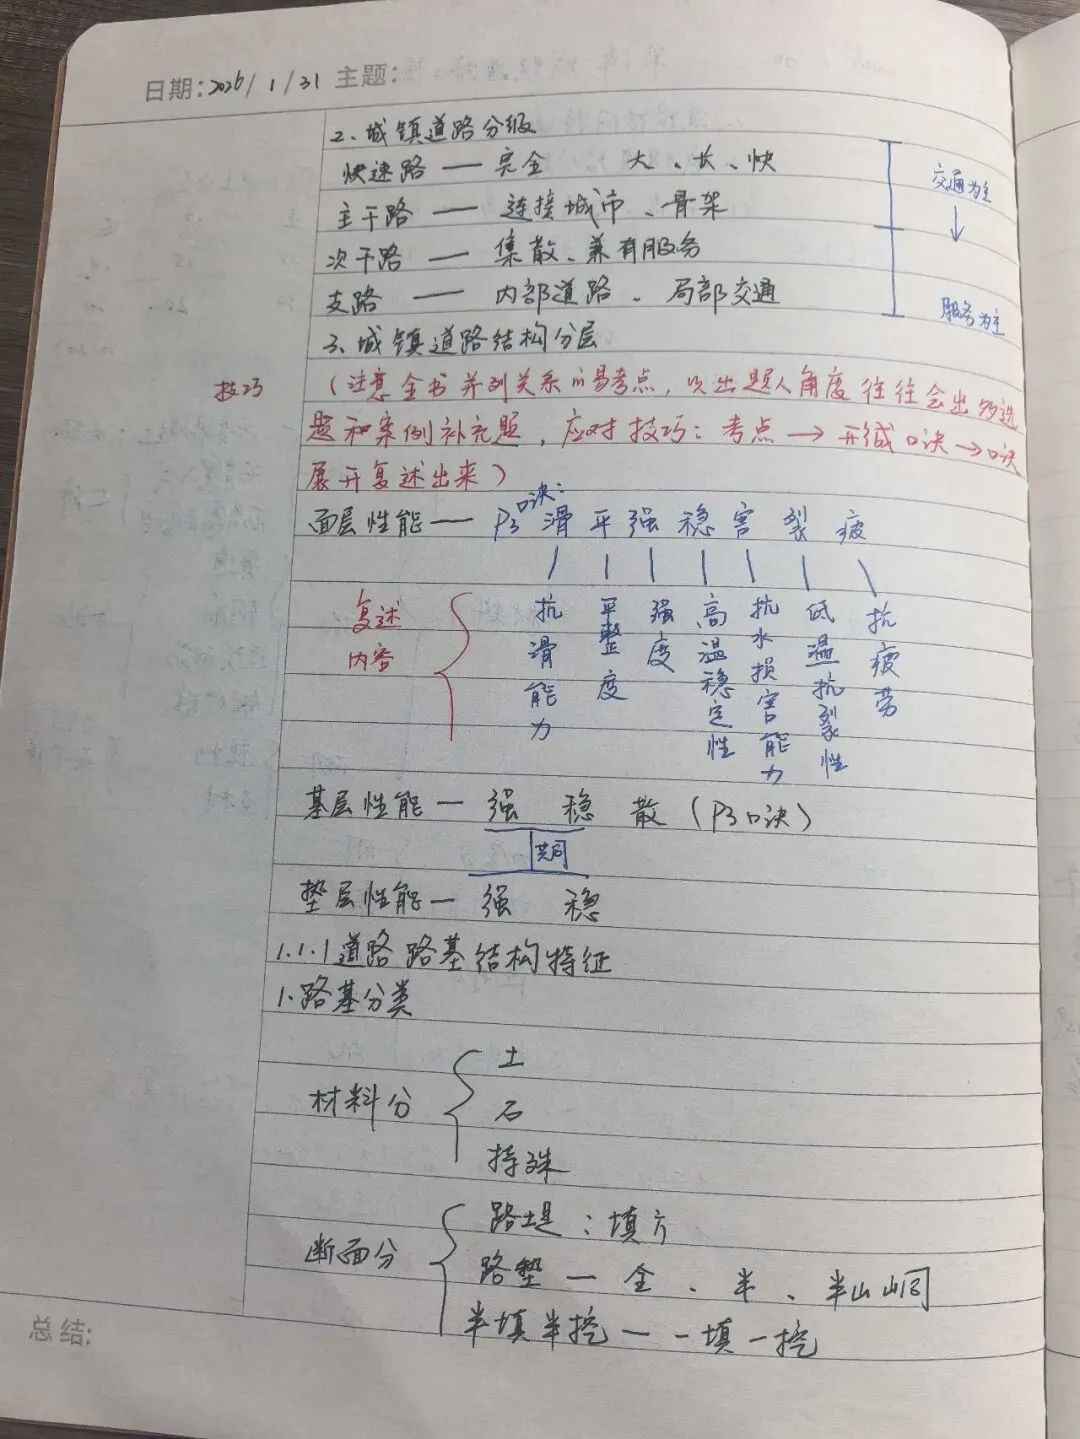 日期:2026/1/31 主题:
2、城镇道路分级
快速路 — 完全 大、长、快
主干路 — 连接城市、骨架
次干路 — 集散、兼有服务
支路 — 内部道路、局部交通
交通为主
↓
服务为主
3、城镇道路结构分层
技巧
(注意全书并列关系的易考点,以出题人角度往往会出多选
题和案例补充题,应对技巧:考点→形成口诀→口诀
展开复述出来)
面层性能— P3口诀:滑 平 强 稳 害 裂 疲
复述
内容
抗滑能力
平整度
强度
高温稳定性
抗水损害能力
低温抗裂性
抗疲劳
基层性能— 强 稳 散(P3口诀)
共同
垫层性能— 强 稳
1.1.1道路路基结构特征
1.路基分类
材料分
土
石
特殊
断面分
路堤:填方
路垫 — 全、半、半山峒
半填半挖 — 一填一挖
总结: